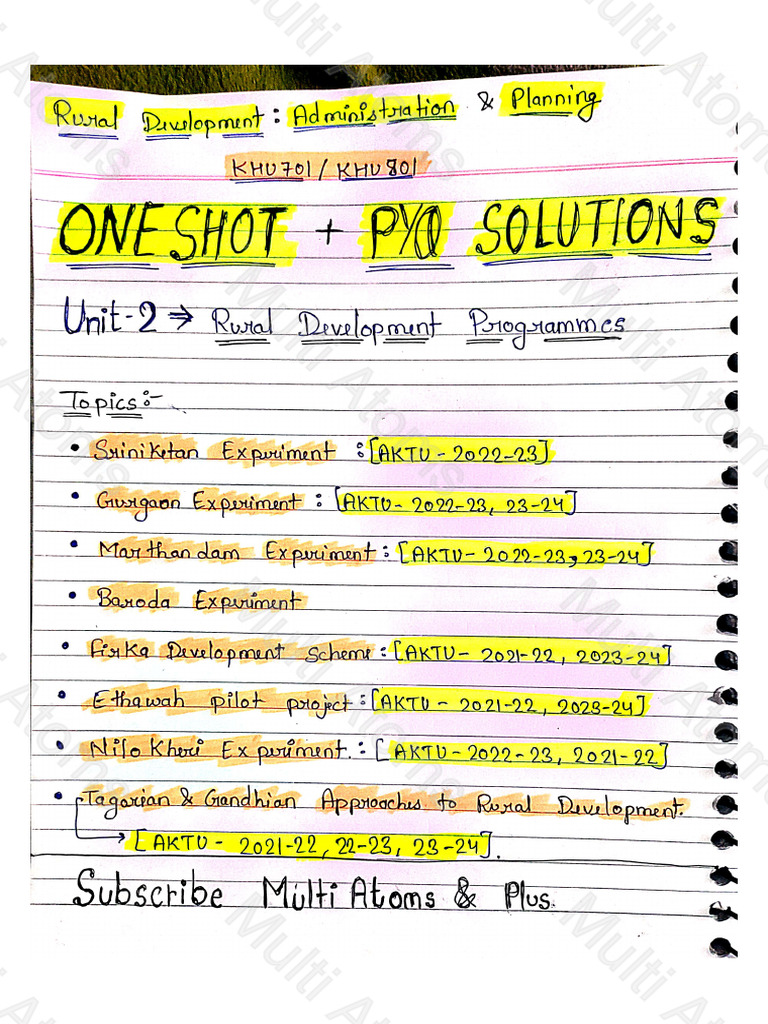 Rural Development : Administration & Planning
KHU701 / KHU801
ONE SHOT + PYQ SOLUTIONS
Unit-2 ⇒ Rural Development Programmes
Topics :-
• Sriniketan Experiment : [AKTU - 2022-23]
• Gurgaon Experiment : [AKTU - 2022-23, 23-24]
• Marthandam Experiment : [AKTU - 2022-23, 23-24]
• Baroda Experiment
• Firka Development Scheme : [AKTU - 2021-22, 2023-24]
• Ethawah pilot project : [AKTU - 2021-22, 2023-24]
• Nilokheri Experiment. : [AKTU - 2022-23, 2021-22]
• Tagorian & Gandhian Approaches to Rural Development.
→ [AKTU - 2021-22, 22-23, 23-24].
Subscribe Multi Atoms & Plus.
Multi Atoms